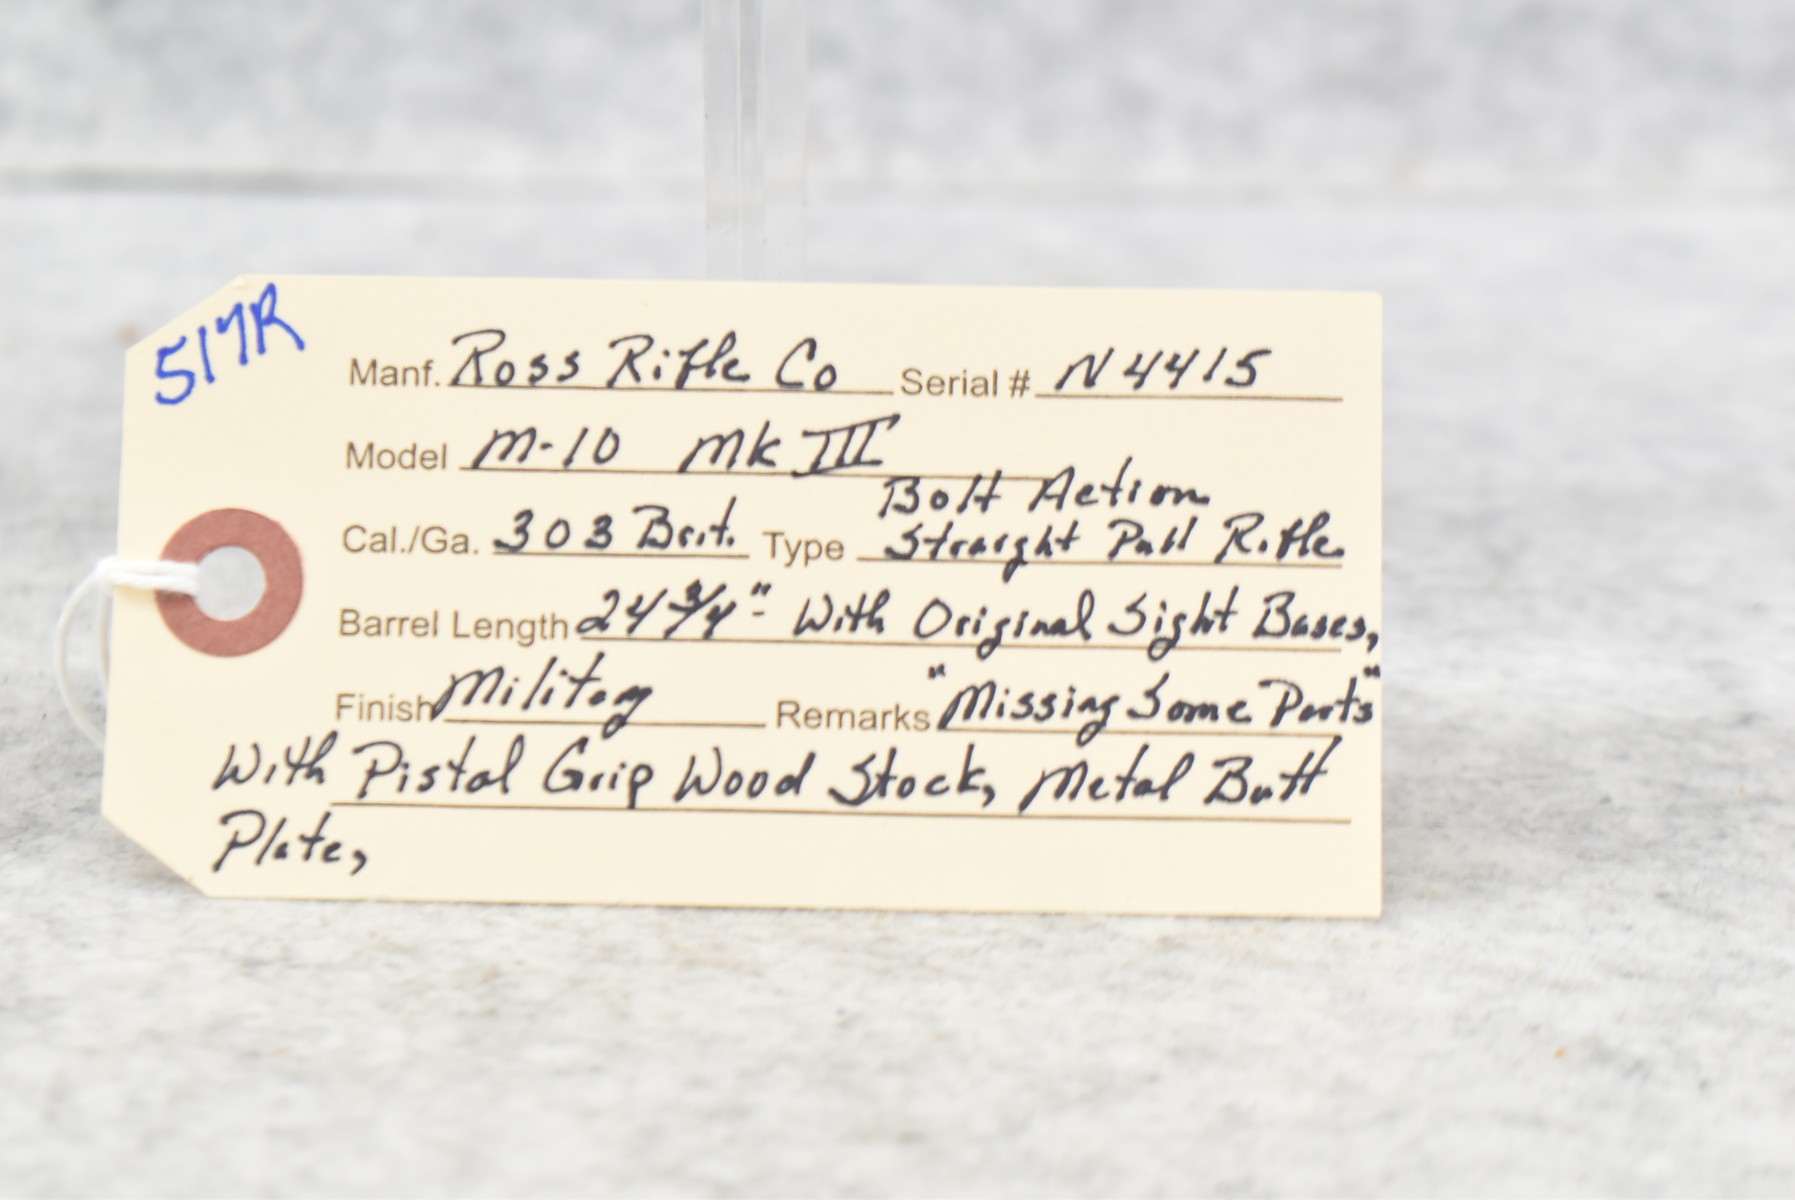 517R
Manf. Ross Rifle Co Serial # N4415
Model M-10 MK III
Bolt Action
Cal./Ga. 303 Brit. Type Straight Pull Rifle
Barrel Length 24 3/4" With Original Sight Bases,
Finish Military Remarks "Missing Some Parts"
With Pistal Grip Wood Stock, Metal Butt
Plate,